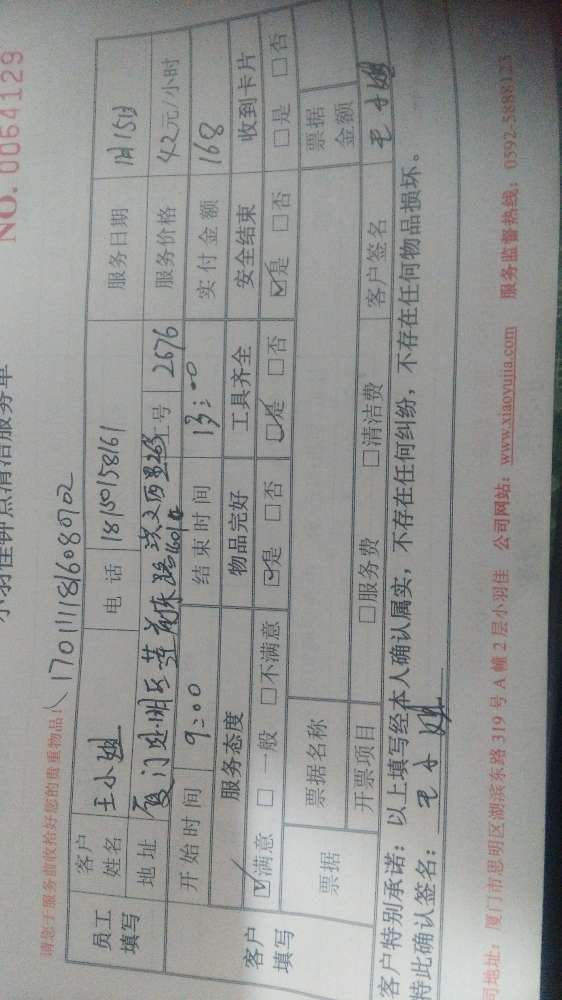 小羽佳钟点清洁服务单
NO. 0064129
请您于服务前收拾好您的贵重物品!
1701111816080702
员工填写 客户姓名 王小姐 电话 18150158161 服务日期 11月15日
地址 厦门思明区莲前东路 工号 2676 服务价格 42元/小时
开始时间 9:00 结束时间 13:00 实付金额 168
客户填写 服务态度 物品完好 工具齐全 安全结束 收到卡片
☑满意 □一般 □不满意 ☑是 □否 ☑是 □否 ☑是 □否 □是 □否
票据 票据名称 票据金额
开票项目 □服务费 □清洁费 客户签名
客户特别承诺：以上填写经本人确认属实，不存在任何纠纷，不存在任何物品损坏。
特此确认签名：
司地址：厦门市思明区湖滨东路 319 号 A 幢 2 层小羽佳 公司网站：www.xiaoyujia.com 服务监督热线：0592-5888123